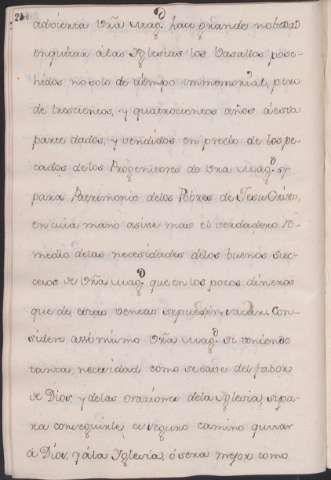 adbierta Vña Magd. hace grande nobedad
en quitar á las Yglesias los Vasallos pose-
hidos no solo de tiempo immemorial, pero
de trescientos, y quatrocientos años á esta
parte dados, y vendidos en precio de los pe-
cados de los Progenitores de Vña Magd. y
para Patrimonio de los Pobres de Jesu Christo,
en cuia mano asiste mas el verdadero re-
medio de las necesidades de los buenos suc-
cesos de Vña Magd. que en los pocos dineros
que de estas ventas se pueden sacar. Con-
sidere assi mismo Vña Magd. si teniendo
tanta necesidad como se sabe del fabor
de Dios y de las oraciones de la Yglesia, si pa-
ra conseguirle, es seguro camino quitar
á Dios, y á la Yglesia, ó sera mejor como